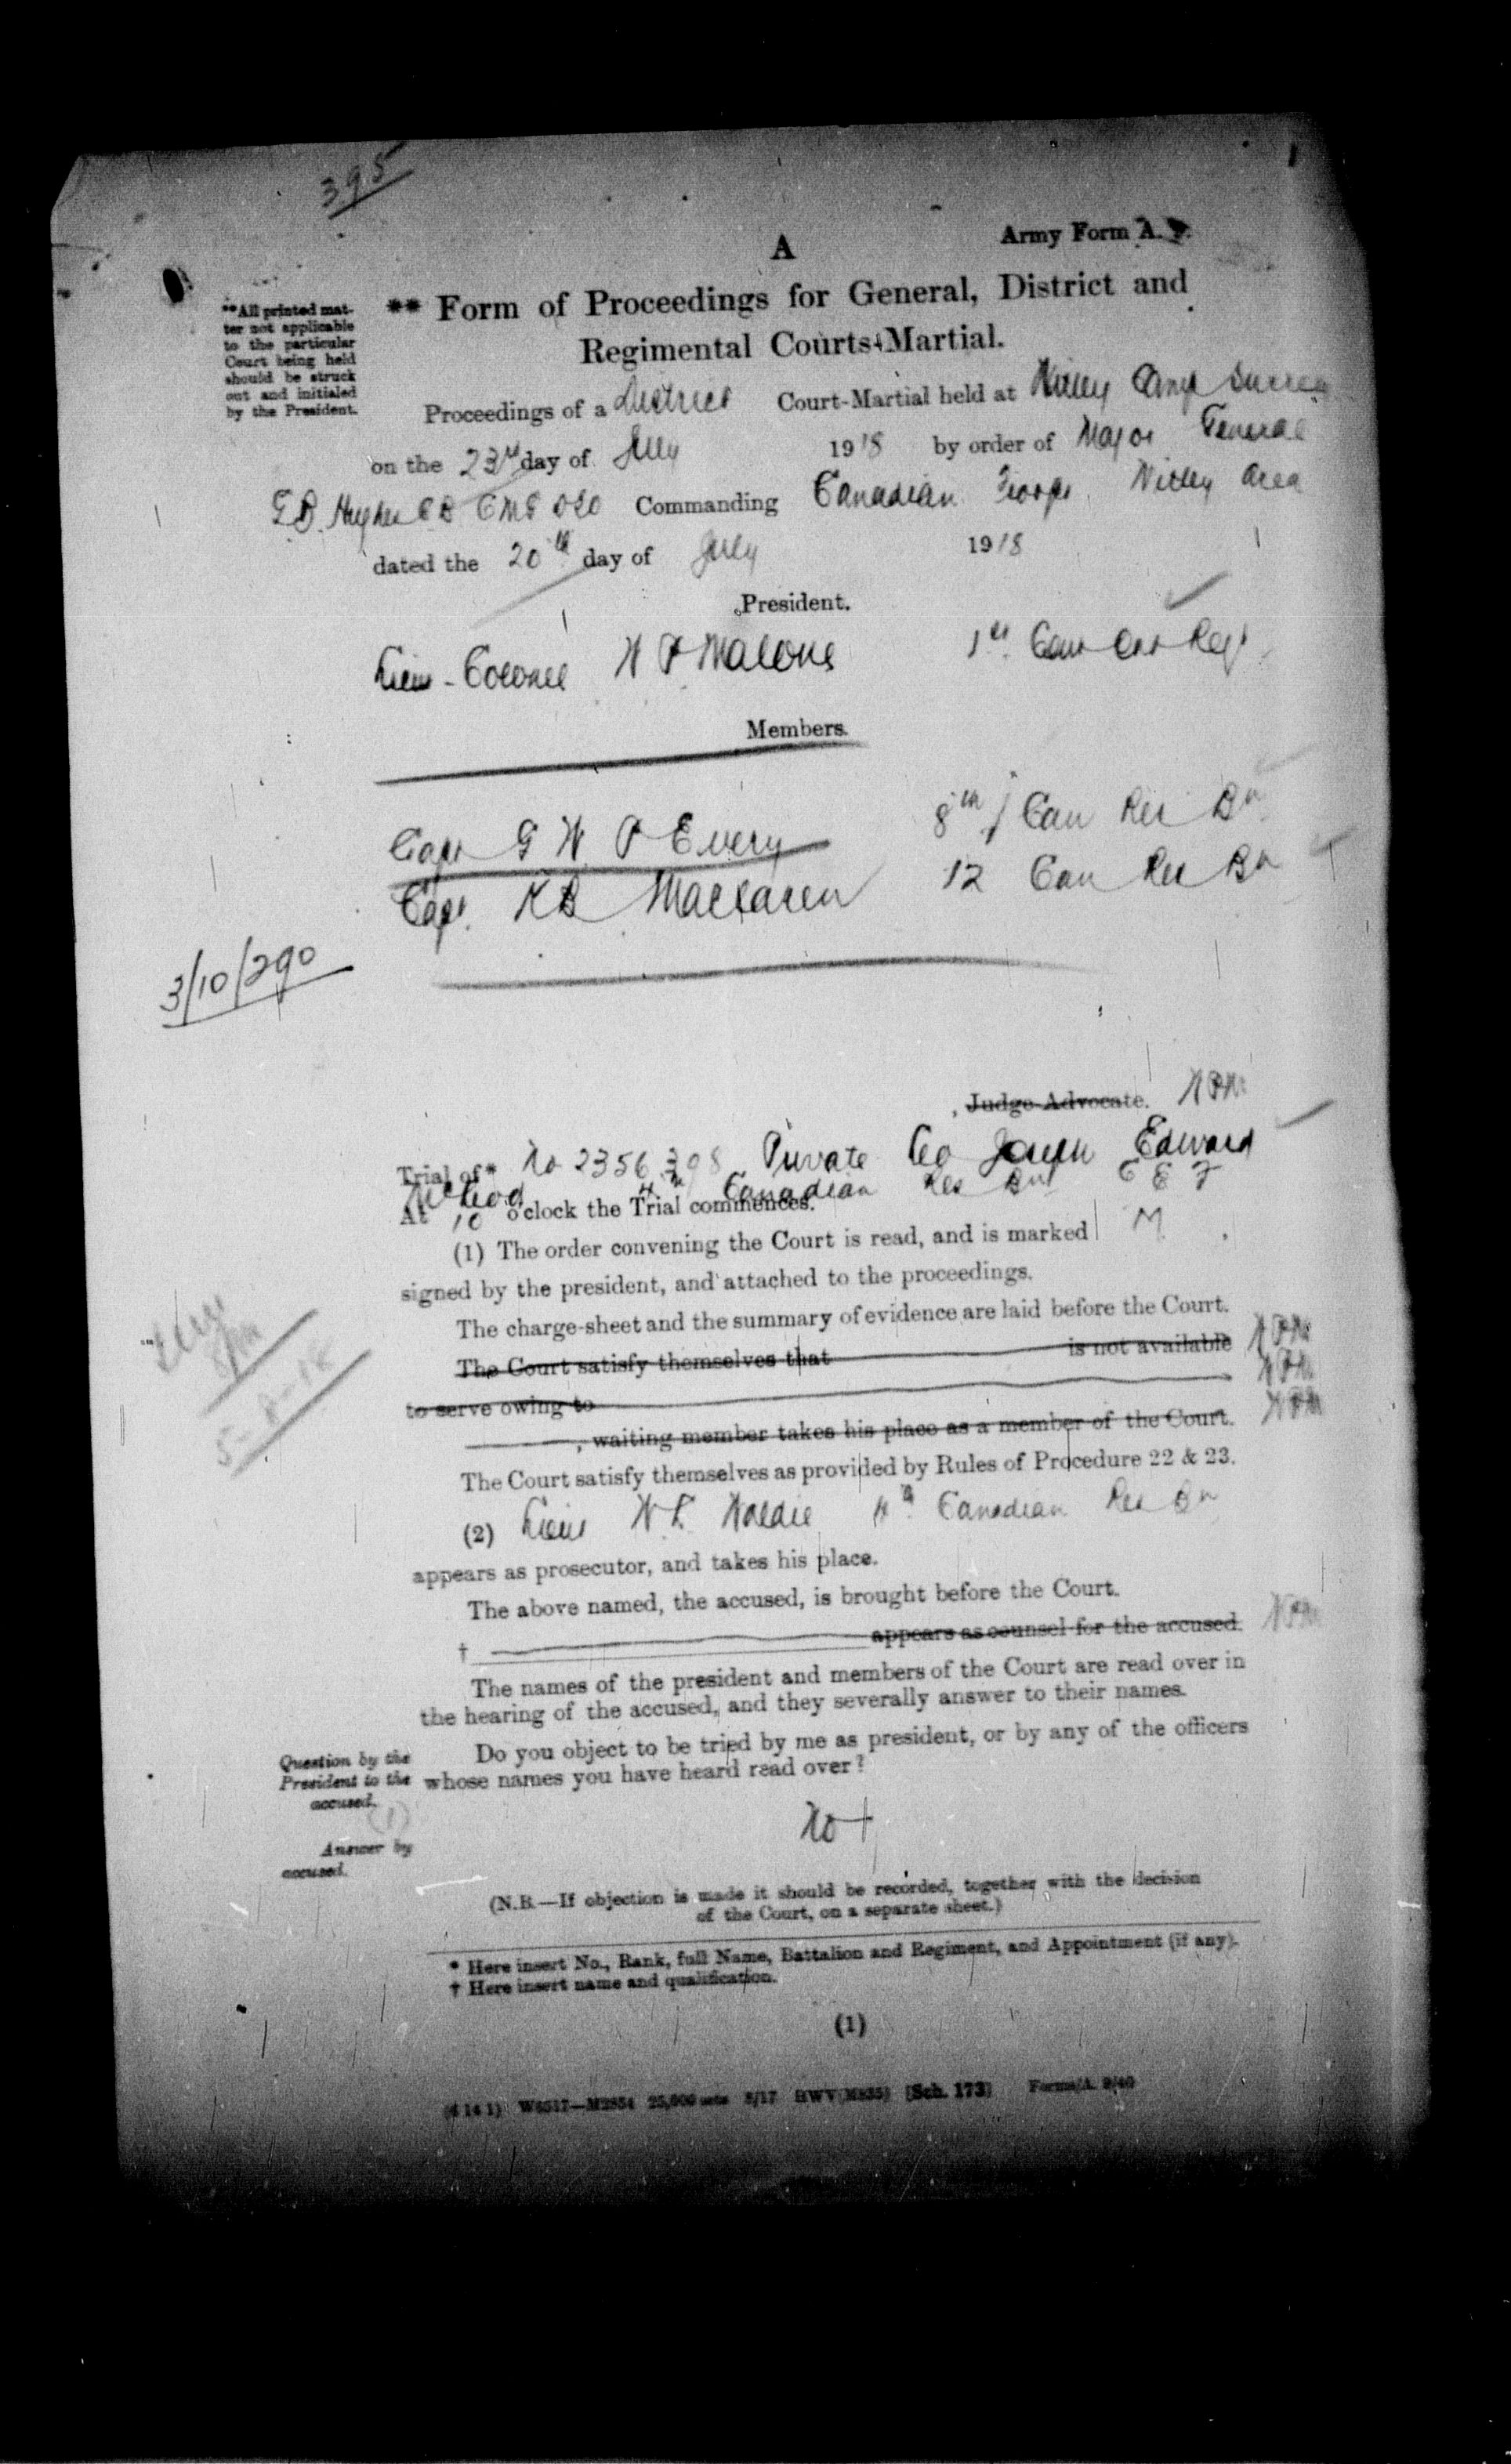 395
A
Army Form A. 9.
** Form of Proceedings for General, District and
Regimental Courts-Martial.
**All printed mat-
ter not applicable
to the particular
Court being held
should be struck
out and initialed
by the President.
Proceedings of a District Court-Martial held at Witley Camp Surrey
on the 23rd day of July 1918 by order of Major General
G.B. Hughes CB CMG DSO Commanding Canadian Troops Witley Area
dated the 20th day of July 1918
President.
Lieu-Colonel W P Malone 1st Can Regt
Members.
Capt G W P Every 8th Can Res Bn
Capt. K B Maclaren 12 Can Res Bn
3/10/290
Judge-Advocate.
Trial of* No 2356398 Private Leo Joseph Edward
McLeod 4th Canadian Res Bn C E F
At 10 o'clock the Trial commences.
(1) The order convening the Court is read, and is marked M
signed by the president, and attached to the proceedings.
The charge-sheet and the summary of evidence are laid before the Court.
The Court satisfy themselves that is not available
to serve owing to
, waiting member takes his place as a member of the Court.
5-8-18
The Court satisfy themselves as provided by Rules of Procedure 22 & 23.
(2) Lieut W L 4th Canadian Res Bn
appears as prosecutor, and takes his place.
The above named, the accused, is brought before the Court.
† appears as counsel for the accused.
The names of the president and members of the Court are read over in
the hearing of the accused, and they severally answer to their names.
Question by the
President to the
accused.
Do you object to be tried by me as president, or by any of the officers
whose names you have heard read over?
Answer by
accused.
No
(N.B.—If objection is made it should be recorded, together with the decision
of the Court, on a separate sheet.)
* Here insert No., Rank, full Name, Battalion and Regiment, and Appointment (if any).
† Here insert name and qualification.
(1)
(Sch. 173)